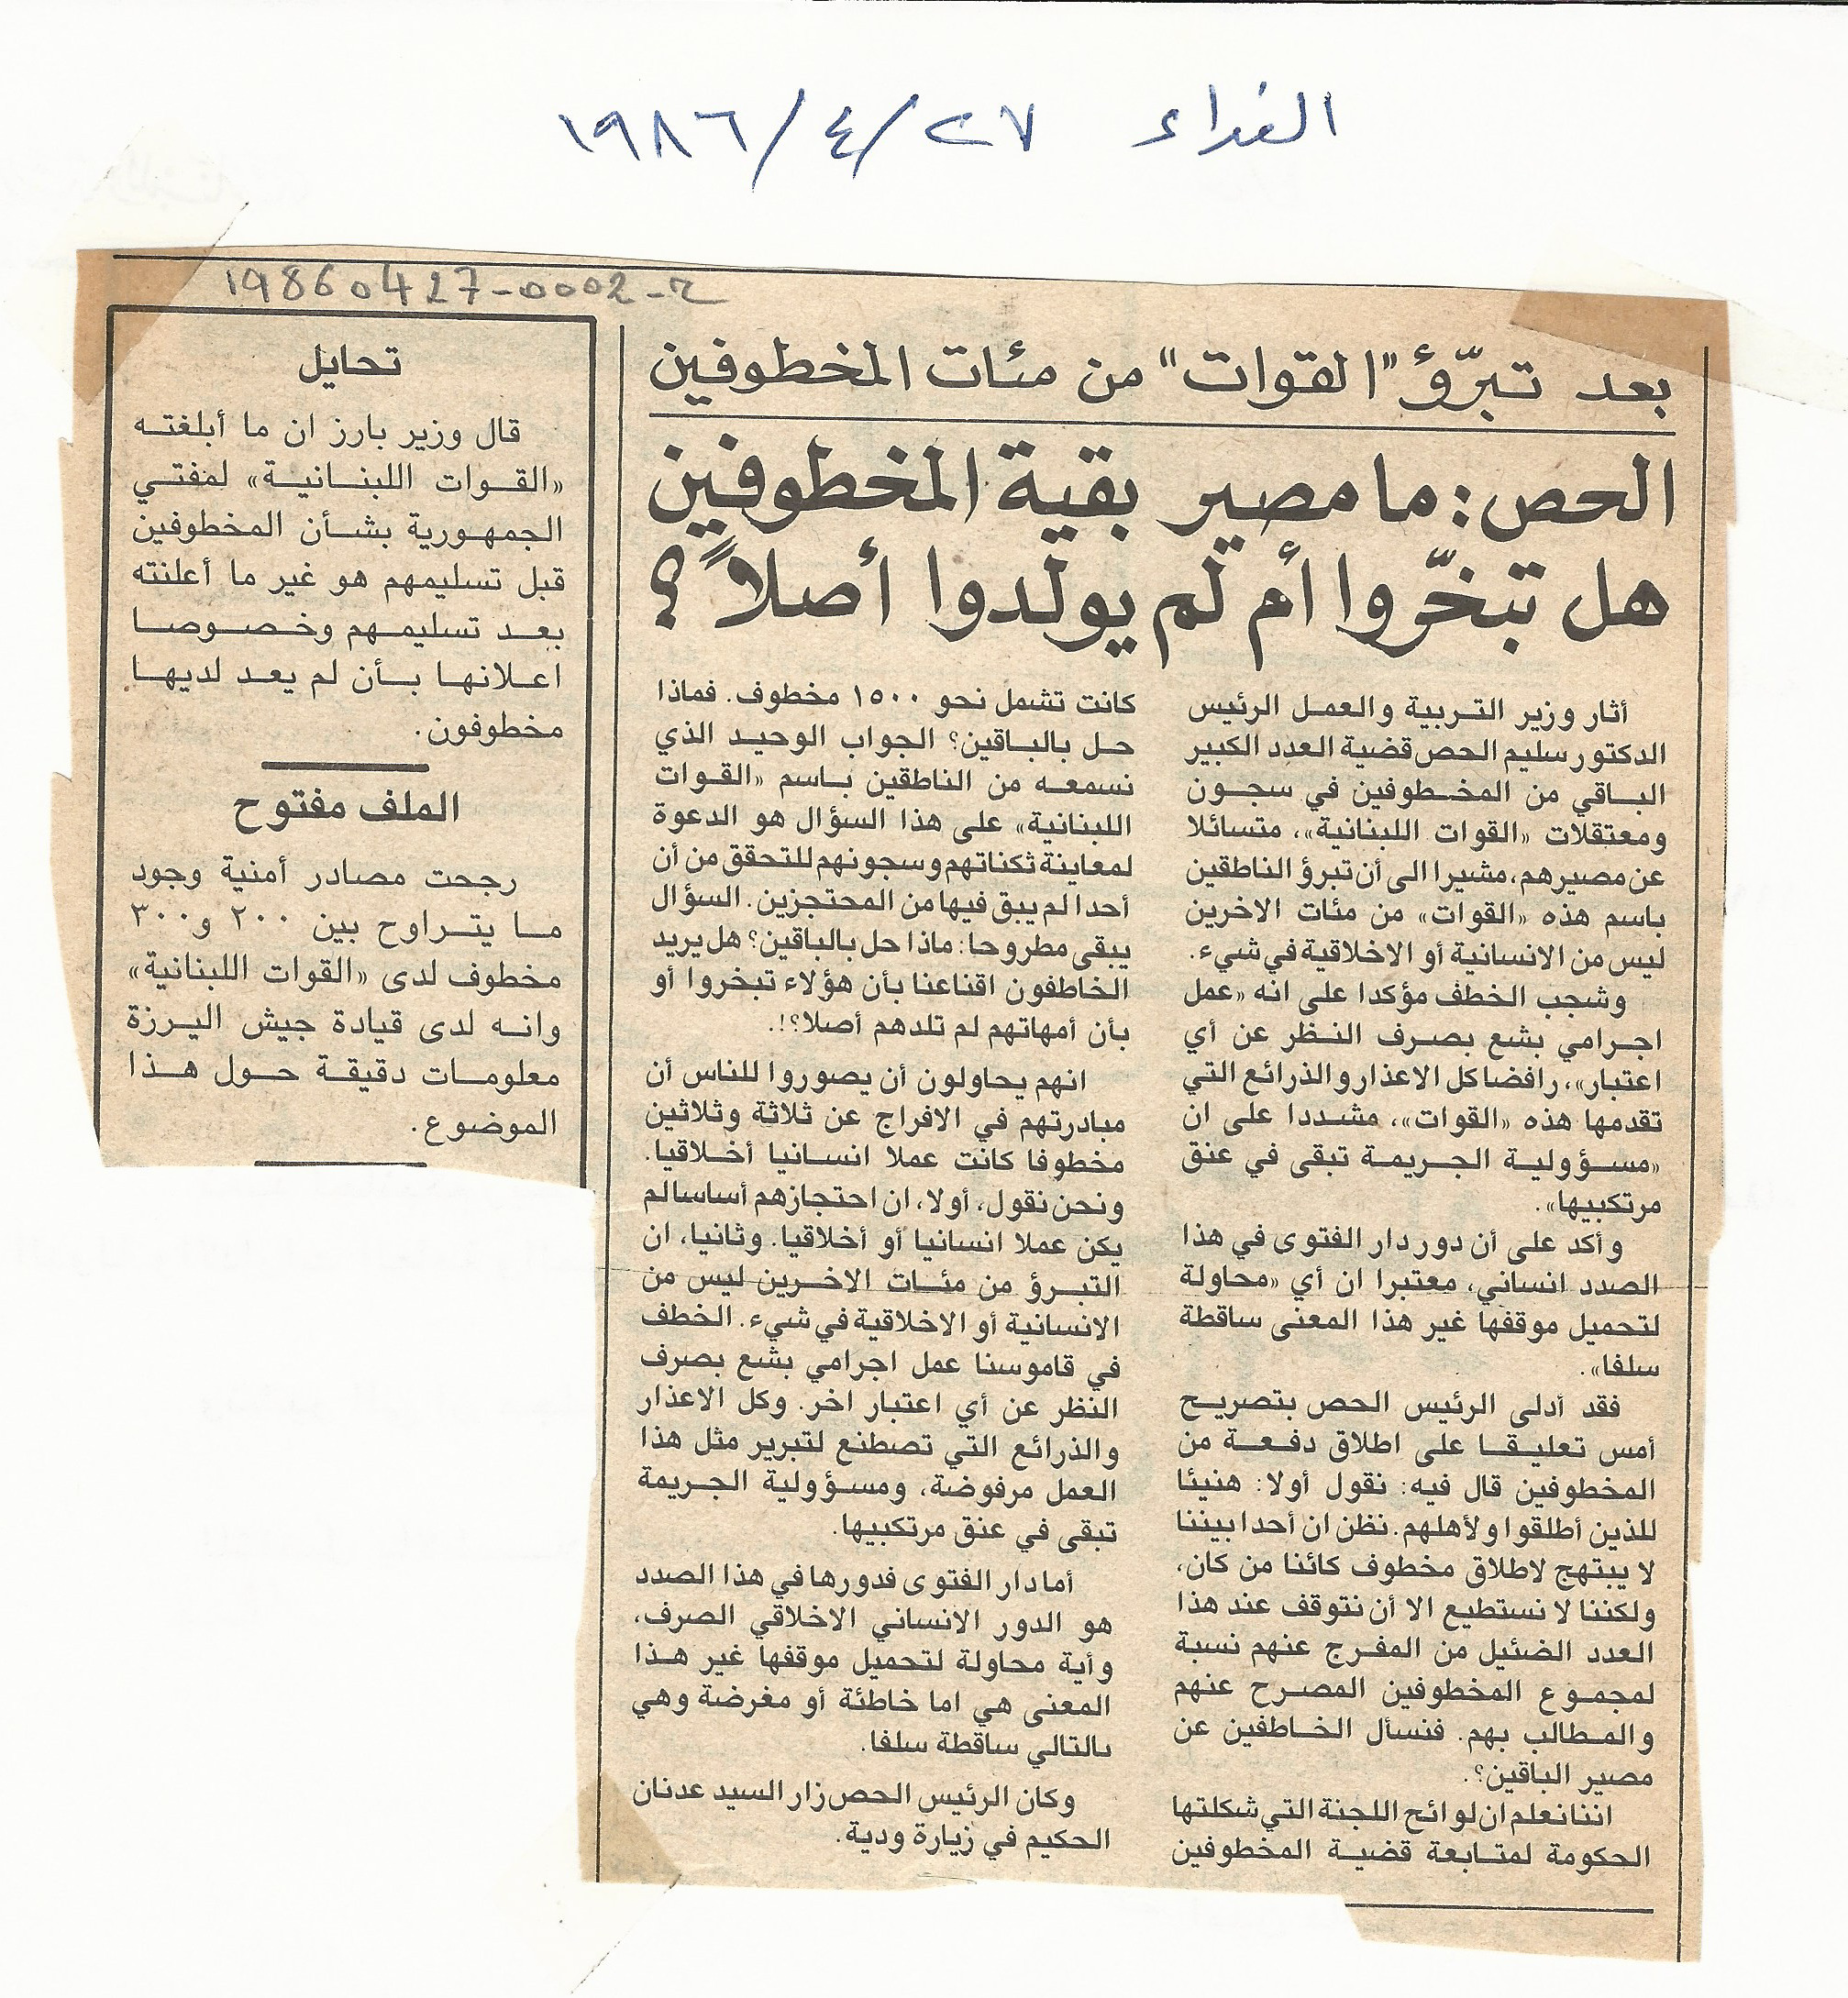 النداء ٢٧/٤/١٩٨٦
19860427-0002-ح
بعد تبرّؤ "القوات" من مئات المخطوفين
الحص: ما مصير بقية المخطوفين
هل تبخّروا أم لم يولدوا أصلاً؟
أثار وزير التربية والعمل الرئيس
الدكتور سليم الحص قضية العدد الكبير
الباقي من المخطوفين في سجون
ومعتقلات «القوات اللبنانية»، متسائلا
عن مصيرهم، مشيرا الى أن تبرؤ الناطقين
باسم هذه «القوات» من مئات الاخرين
ليس من الانسانية أو الاخلاقية في شيء.
وشجب الخطف مؤكدا على انه «عمل
اجرامي بشع بصرف النظر عن أي
اعتبار»، رافضا كل الاعذار والذرائع التي
تقدمها هذه «القوات»، مشددا على ان
«مسؤولية الجريمة تبقى في عنق
مرتكبيها».
وأكد على أن دور دار الفتوى في هذا
الصدد انساني، معتبرا ان أي «محاولة
لتحميل موقفها غير هذا المعنى ساقطة
سلفا».
فقد أدلى الرئيس الحص بتصريح
أمس تعليقا على اطلاق دفعة من
المخطوفين قال فيه: نقول أولا: هنيئا
للذين أطلقوا ولأهلهم. نظن ان أحدا بيننا
لا يبتهج لاطلاق مخطوف كائنا من كان،
ولكننا لا نستطيع الا أن نتوقف عند هذا
العدد الضئيل من المفرج عنهم نسبة
لمجموع المخطوفين المصرح عنهم
والمطالب بهم. فنسأل الخاطفين عن
مصير الباقين؟.
اننا نعلم ان لوائح اللجنة التي شكلتها
الحكومة لمتابعة قضية المخطوفين
كانت تشمل نحو ١٥٠٠ مخطوف. فماذا
حل بالباقين؟ الجواب الوحيد الذي
نسمعه من الناطقين باسم «القوات
اللبنانية» على هذا السؤال هو الدعوة
لمعاينة ثكناتهم وسجونهم للتحقق من أن
أحدا لم يبق فيها من المحتجزين. السؤال
يبقى مطروحا: ماذا حل بالباقين؟ هل يريد
الخاطفون اقناعنا بأن هؤلاء تبخروا أو
بأن أمهاتهم لم تلدهم أصلا؟!.
انهم يحاولون أن يصوروا للناس أن
مبادرتهم في الافراج عن ثلاثة وثلاثين
مخطوفا كانت عملا انسانيا أخلاقيا.
ونحن نقول، أولا، ان احتجازهم أساسا لم
يكن عملا انسانيا أو أخلاقيا. وثانيا، ان
التبرؤ من مئات الاخرين ليس من
الانسانية أو الاخلاقية في شيء. الخطف
في قاموسنا عمل اجرامي بشع بصرف
النظر عن أي اعتبار اخر. وكل الاعذار
والذرائع التي تصطنع لتبرير مثل هذا
العمل مرفوضة، ومسؤولية الجريمة
تبقى في عنق مرتكبيها.
أما دار الفتوى فدورها في هذا الصدد
هو الدور الانساني الاخلاقي الصرف،
وأية محاولة لتحميل موقفها غير هذا
المعنى هي اما خاطئة أو مغرضة وهي
بالتالي ساقطة سلفا.
وكان الرئيس الحص زار السيد عدنان
الحكيم في زيارة ودية.
تحايل
قال وزير بارز ان ما أبلغته
«القوات اللبنانية» لمفتي
الجمهورية بشأن المخطوفين
قبل تسليمهم هو غير ما أعلنته
بعد تسليمهم وخصوصا
اعلانها بأن لم يعد لديها
مخطوفون.
الملف مفتوح
رجحت مصادر أمنية وجود
ما يتراوح بين ٢٠٠ و٣٠٠
مخطوف لدى «القوات اللبنانية»
وانه لدى قيادة جيش اليرزة
معلومات دقيقة حول هذا
الموضوع.